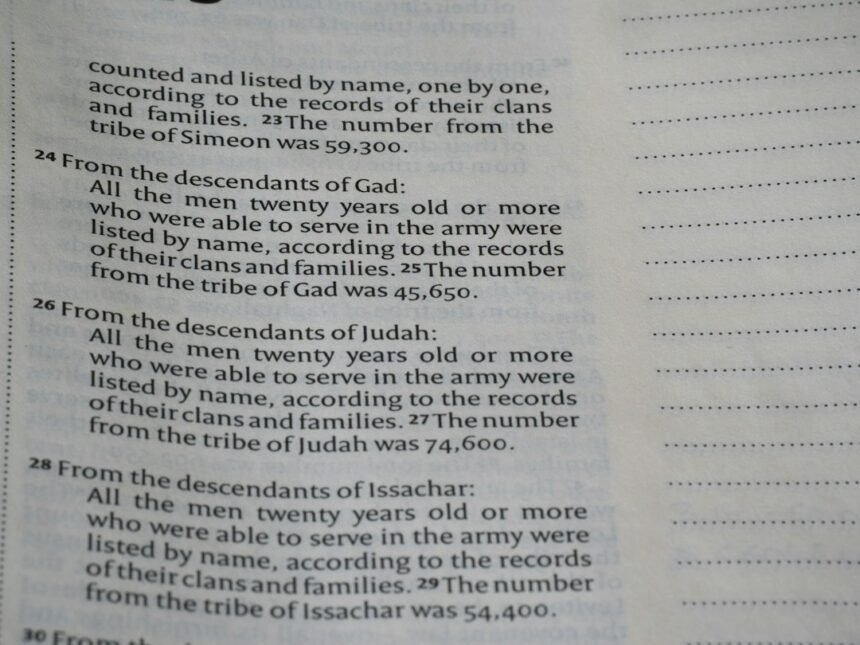 counted and listed by name, one by one,
according to the records of their clans
and families. 23 The number from the
tribe of Simeon was 59,300.
24 From the descendants of Gad:
All the men twenty years old or more
who were able to serve in the army were
listed by name, according to the records
of their clans and families. 25 The number
from the tribe of Gad was 45,650.
26 From the descendants of Judah:
All the men twenty years old or more
who were able to serve in the army were
listed by name, according to the records
of their clans and families. 27 The number
from the tribe of Judah was 74,600.
28 From the descendants of Issachar:
All the men twenty years old or more
who were able to serve in the army were
listed by name, according to the records
of their clans and families. 29 The number
from the tribe of Issachar was 54,400.
30 From the